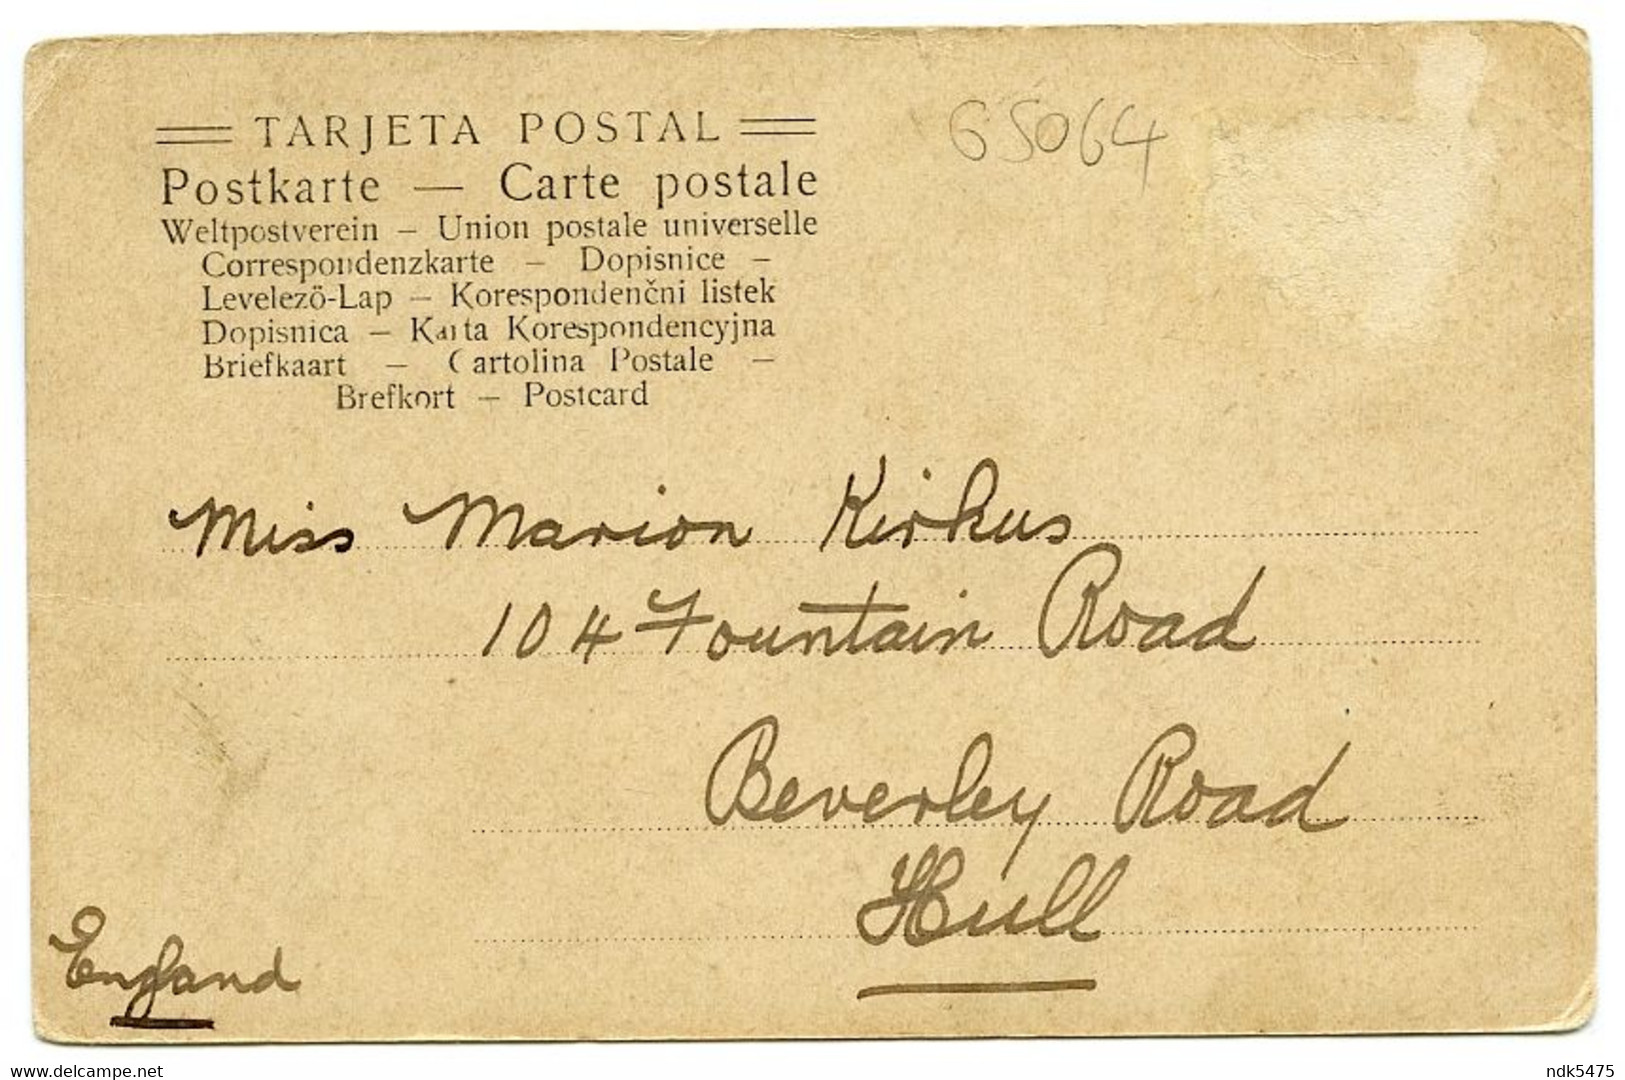 TARJETA POSTAL
65064
Postkarte — Carte postale
Weltpostverein – Union postale universelle
Correspondenzkarte – Dopisnice –
Levelezö-Lap – Korespondenčni listek
Dopisnica – Karta Korespondencyjna
Briefkaart – Cartolina Postale –
Brefkort – Postcard
Miss Marion Kirkus
104 Fountain Road
Beverley Road
Hull
England
www.delcampe.net
ndk5475